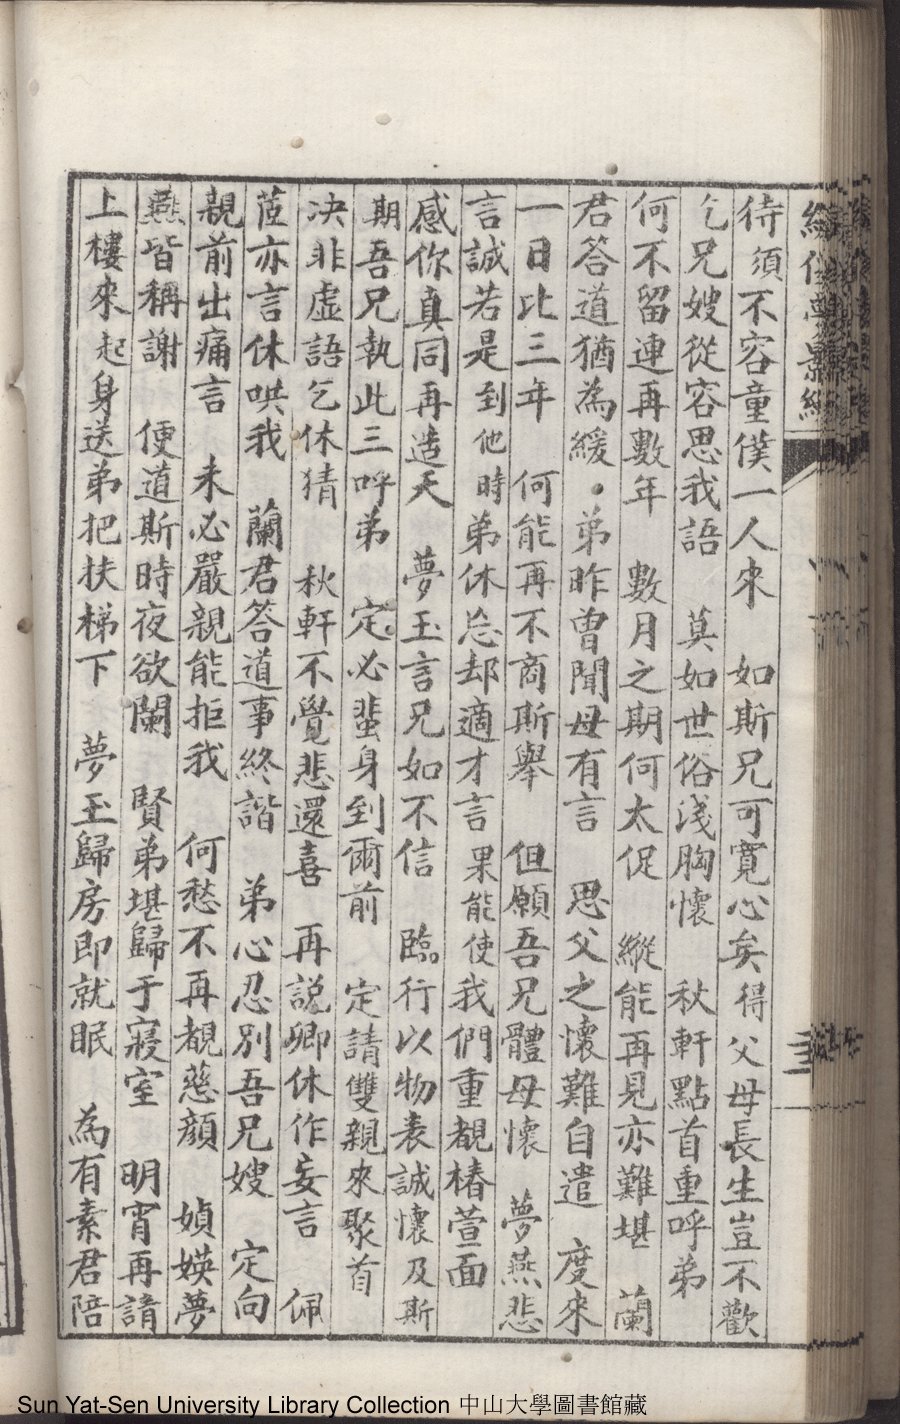 待須不容童僕一人來　如斯兄可寬心矣得父母長生豈不歡
乞兄嫂從容思我語　莫如世俗淺胸懷　秋軒點首重呼弟
何不留連再數年　數月之期何太促　縱能再見亦難堪　蘭
君答道猶為緩　弟昨曾聞母有言　思父之懷難自遣　度來
一日比三年　何能再不商斯舉　但願吾兄體母懷　夢燕悲
言誠若是到他時弟休忘却適才言果能使我們重覩椿萱面
感你真同再造天　夢玉言兄如不信　臨行以物表誠懷及斯
期吾兄執此三呼弟　定必蜚身到爾前　定請雙親來聚首
决非虛語乞休猜　秋軒不覺悲還喜　再說卿休作妄言　佩
茝亦言休哄我　蘭君答道事終諧　弟心忍別吾兄嫂　定向
親前出痛言　未必嚴親能拒我　何愁不再覩慈顏　媜媖夢
燕皆稱謝　便道斯時夜欲闌　賢弟堪歸于寢室　明宵再請
上樓來起身送弟把扶梯下　夢玉歸房即就眠　為有素君陪
Sun Yat-Sen University Library Collection 中山大學圖書館藏